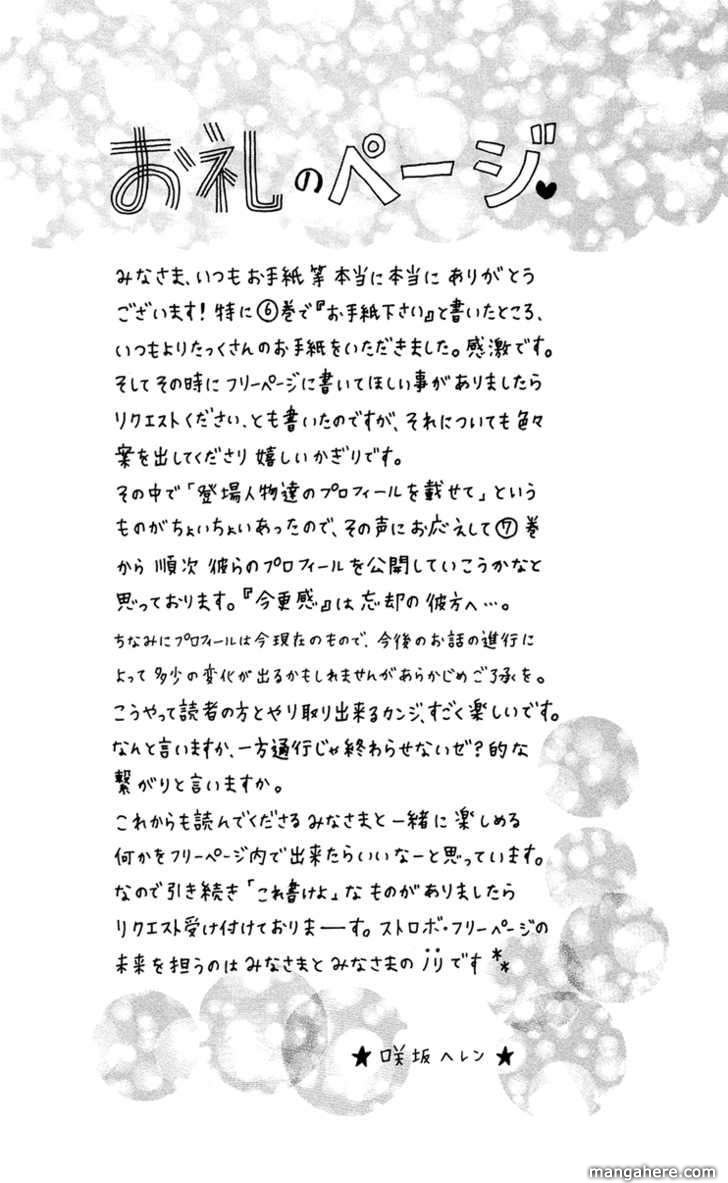 お礼のページ♥
みなさま、いつもお手紙 等 本当に本当に ありがとう
ございます! 特に⑥巻で『お手紙下さい』と書いたところ、
いつもよりたっくさんのお手紙をいただきました。感激です。
そしてその時にフリーページに書いてほしい事がありましたら
リクエストください、とも書いたのですが、それについても色々
案を出してくださり 嬉しいかぎりです。
その中で「登場人物達のプロフィールを載せて」という
ものがちょいちょいあったので、その声にお応えして⑦巻
から 順次 彼らのプロフィールを公開していこうかなと
思っております。『今更感』は 忘却の彼方へ…。
ちなみにプロフィールは今現在のもので、今後のお話の進行に
よって多少の変化が出るかもしれませんがあらかじめご了承を。
こうやって読者の方とやり取り出来るカンジ、すごく楽しいです。
なんと言いますか、一方通行じゃ終わらせないゼ?的な
繋がりと言いますか。
これからも読んでくださるみなさまと一緒に楽しめる
何かをフリーページ内で出来たらいいなーと思っています。
なので引き続き「これ書けよ」なものがありましたら
リクエスト受け付けておりまーす。ストロボ・フリーページの
未来を担うのはみなさまとみなさまの です**
★咲坂ヘレン★
mangahere.com